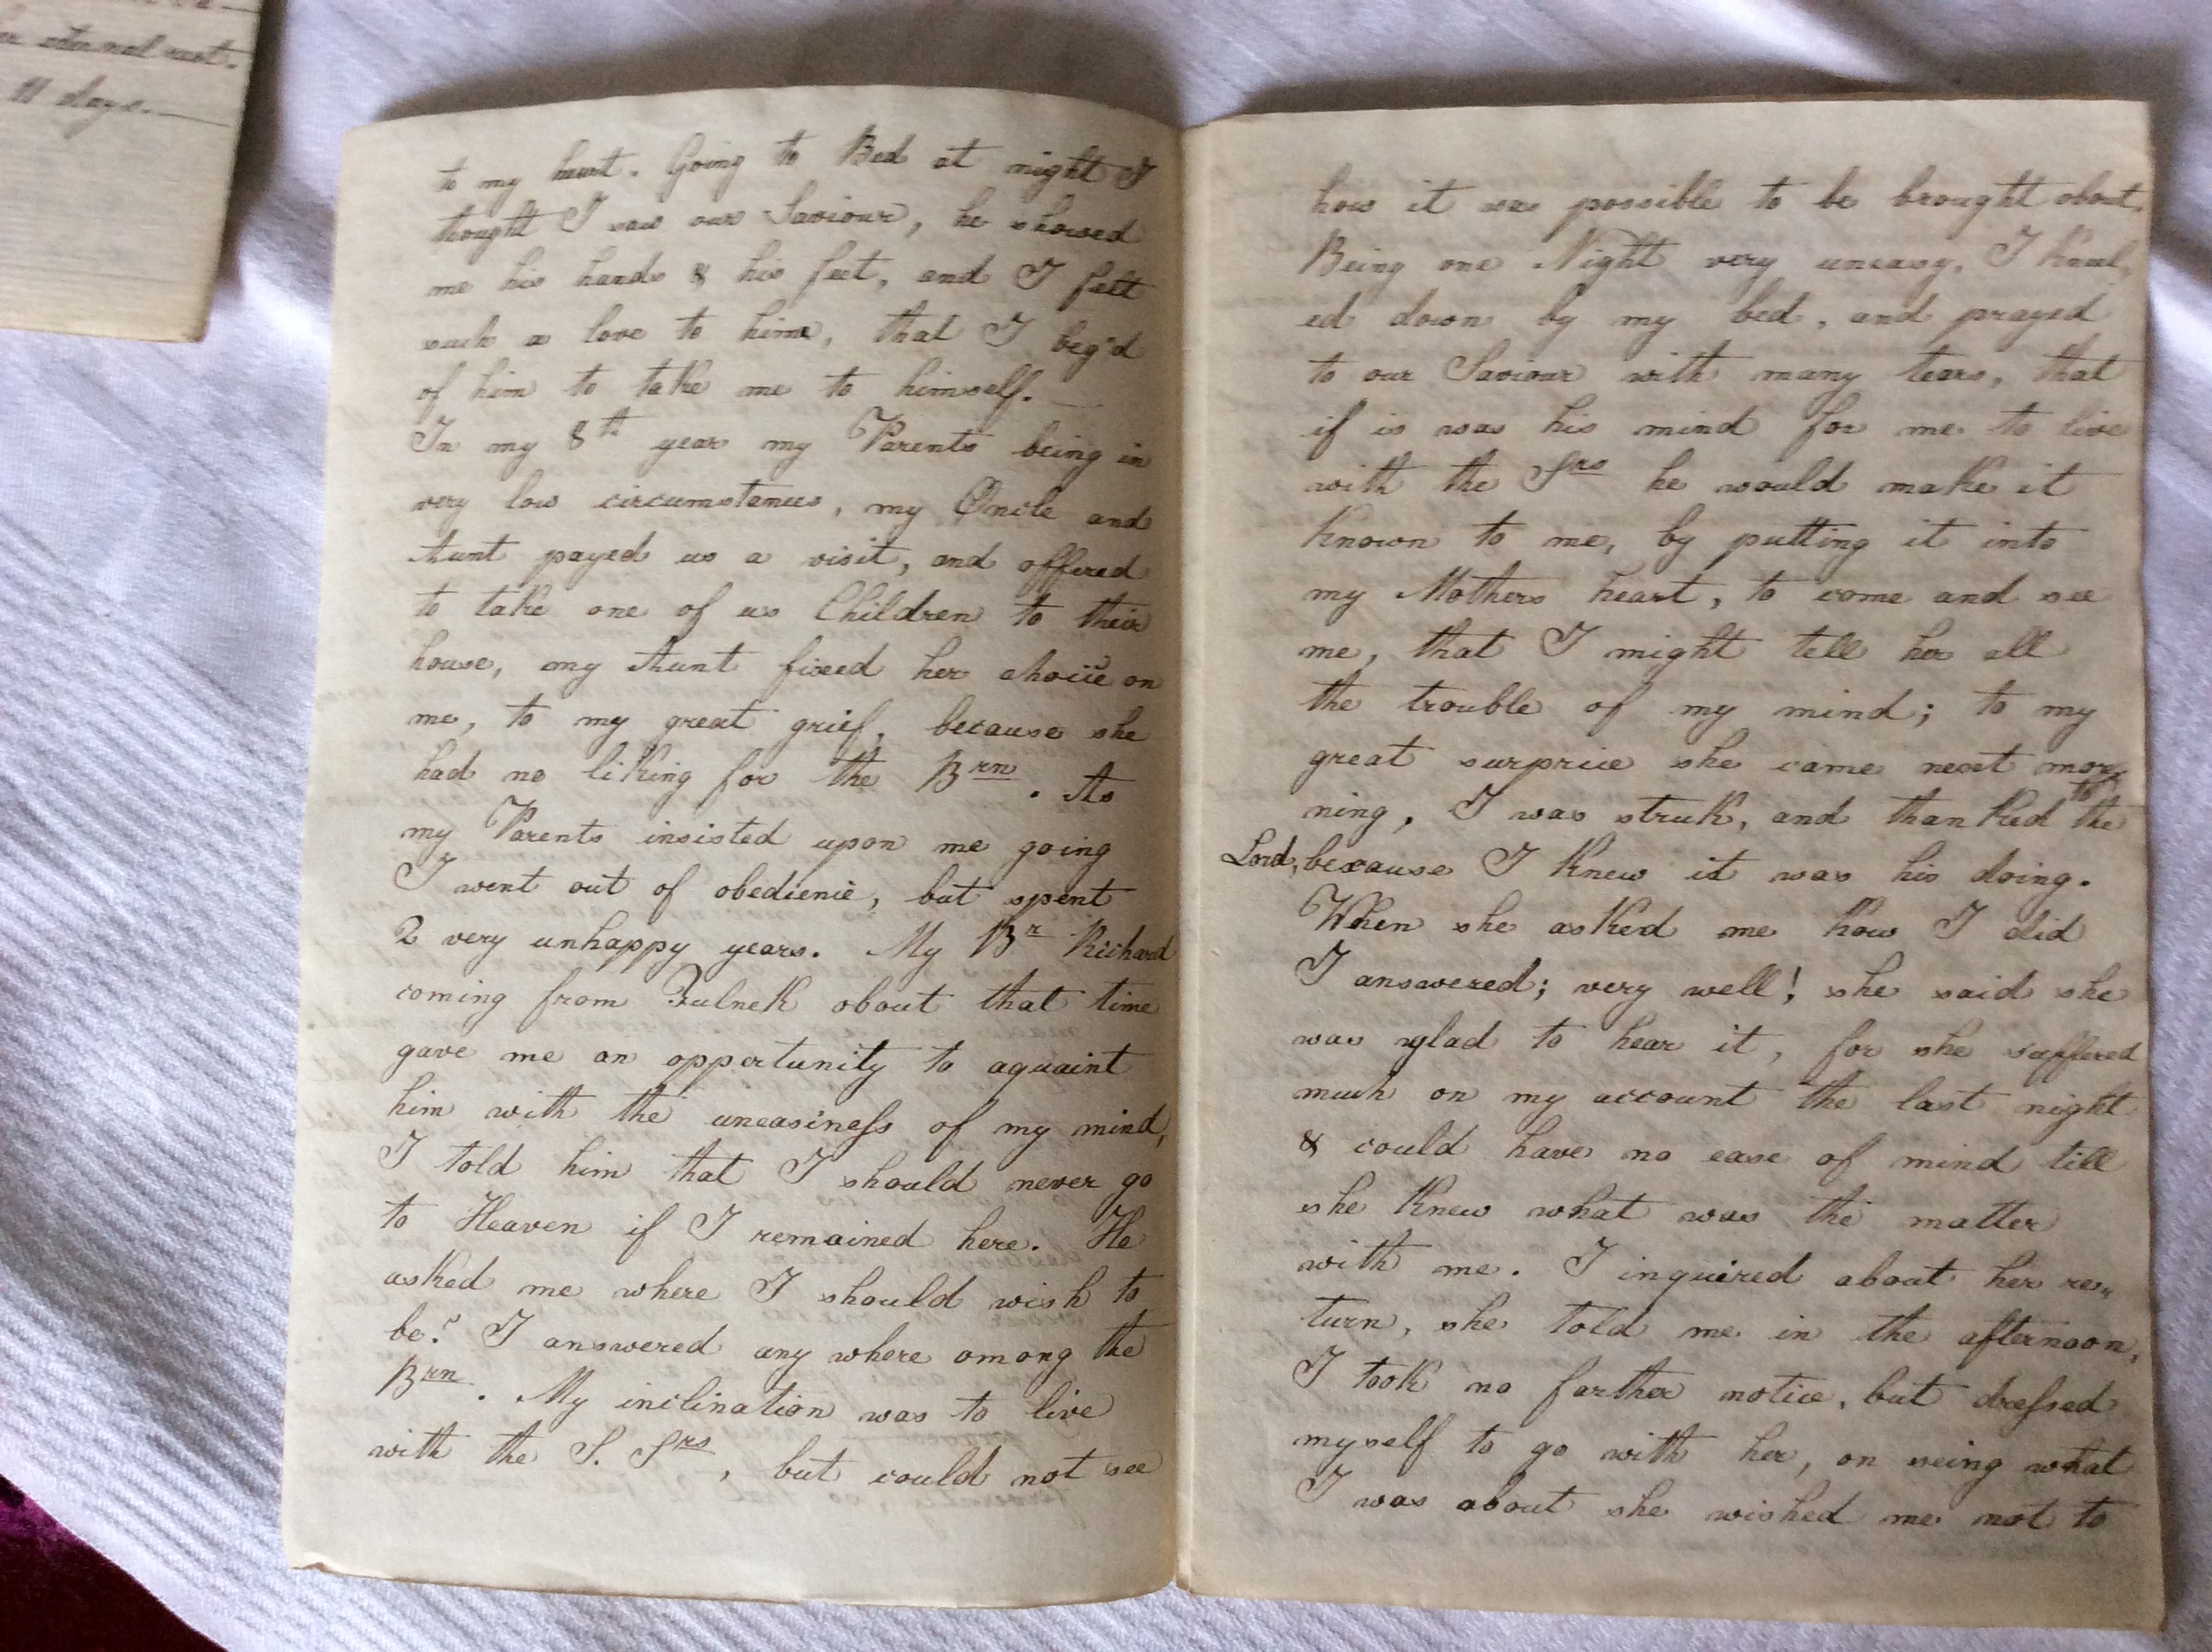 er eternal rest.
11 days.
to my heart. Going to Bed at night I
thought I saw our Saviour, he showed
me his hands & his feet, and I felt
such a love to him, that I beg'd
of him to take me to himself.
In my 8th year my Parents being in
very low circumstances, my Oncle and
Aunt payed us a visit, and offered
to take one of us Children to their
house, my Aunt fixed her choice on
me, to my great grief, because she
had no liking for the Brn. As
my Parents insisted upon me going
I went out of obedience, but spent
2 very unhappy years. My Br Richard
coming from Fulnek about that time
gave me an oppertunity to aquaint
him with the uneasiness of my mind,
I told him that I should never go
to Heaven if I remained here. He
asked me where I should wish to
be? I answered any where among the
Brn. My inclination was to live
with the S. Srs, but could not see
how it was possible to be brought about.
Being one Night very uneasy, I kneel,
ed down by my bed, and prayed
to our Saviour with many tears, that
if is was his mind for me to live
with the Srs he would make it
known to me, by putting it into
my Mothers heart, to come and see
me, that I might tell her all
the trouble of my mind; to my
great surprice she came next mor,
ning, I was struk, and thanked the
Lord, because I knew it was his doing.
When she asked me how I did
I answered; very well! she said she
was glad to hear it, for she suffered
much on my account the last night
& could have no ease of mind till
she knew what was the matter
with me. I inquired about her re„
turn, she told me in the afternoon,
I took no farther notice, but dressed
myself to go with her, on seing what
I was about she wished me not to